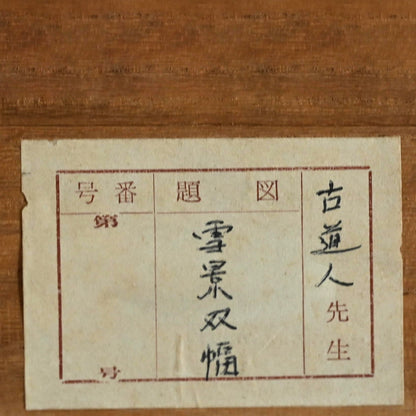 古道人先生
図題
雪景双幅
番号
第
号